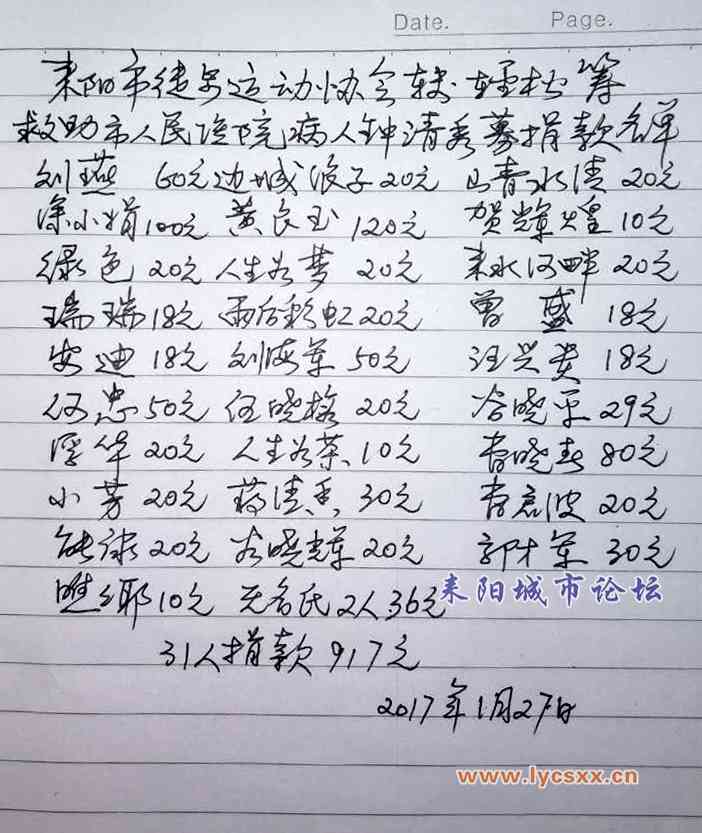 Date. Page.
耒阳市徒步运动协会转轻松筹
救助市人民医院病人钟清秀募捐款名单
刘燕 60元 边城浪子 20元 山青水清 20元
涂小娟 100元 黄良玉 120元 贺辉煌 10元
绿色 20元 人生如梦 20元 耒水河畔 20元
瑞瑞 18元 雨后彩虹 20元 曾盛 18元
安迪 18元 刘海军 50元 汪兴贵 18元
伍忠 50元 伍晓格 20元 谷晓平 29元
浮华 20元 人生如茶 10元 曹晓春 80元
小芳 20元 蒋清香 30元 李君波 20元
20元 谷晓辉 20元 郭才军 30元
10元 无名氏2人 36元
耒阳城市论坛
31人捐款917元
2017年1月27日
www.lycsxx.cn